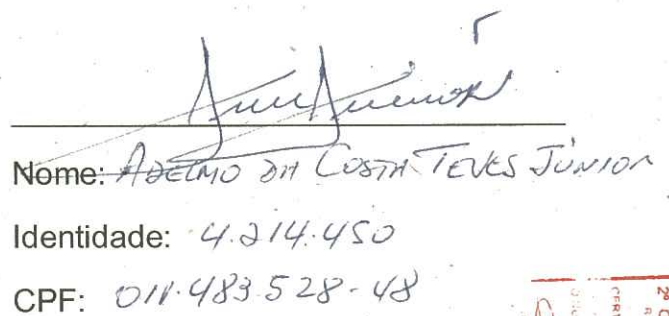 Nome: ADELMO DA COSTA TEVES JÚNIOR
Identidade: 4.214.450
CPF: 011.483.528-48